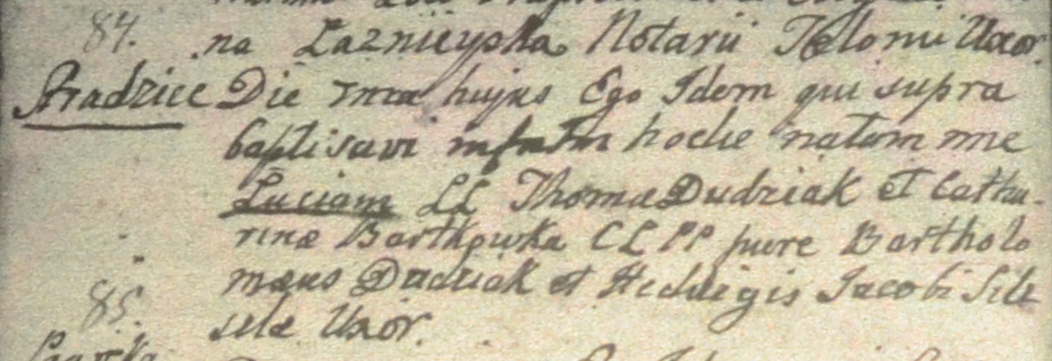 84. na Łaznicyska Notarii Telonii Uxor.
Pradzice Die 7ma hujus Ego Idem qui supra
baptisavi infntm hodie natam nne
Luciam LL Thoma Dudziak et Catha-
rina Bartkowka CLPP fuere Bartholo
mæus Dudziak et Hedvigis Jacobi
85. Uxor.